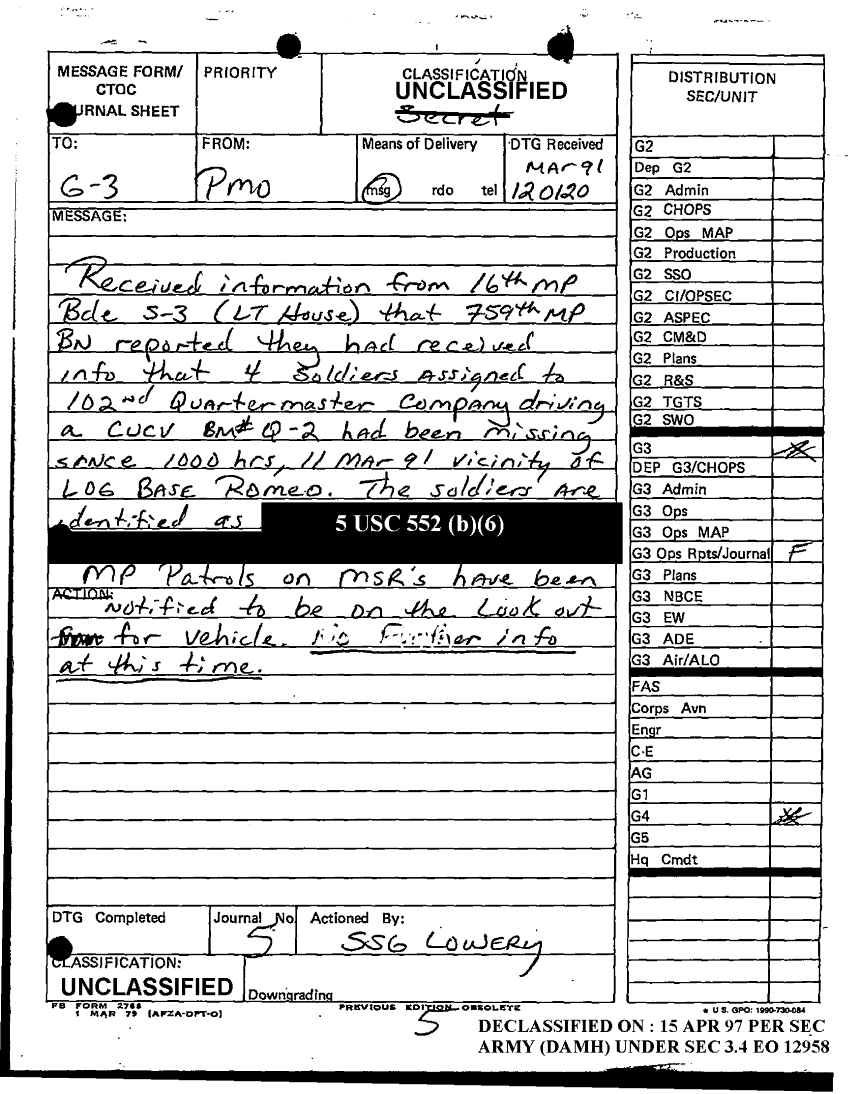 MESSAGE FORM/
CTOC
JOURNAL SHEET
PRIORITY
CLASSIFICATION
UNCLASSIFIED
Secret
TO:
G-3
FROM:
PMO
Means of Delivery
msg rdo tel
DTG Received
MAR 91
120120
MESSAGE:
Received information from 16th MP
Bde S-3 (LT House) that 759th MP
BN reported they had received
info that 4 Soldiers Assigned to
102nd Quartermaster Company driving
a CUCV BM# Q-2 had been missing
sance 1000 hrs, 11 MAR 91 vicinity of
LOG BASE Romeo. The soldiers are
identified as
5 USC 552 (b)(6)
MP Patrols on MSR's have been
ACTION:
Notified to be on the Look out
for vehicle. No Further info
at this time.
DTG Completed
Journal No.
5
Actioned By:
SSG LOWERY
CLASSIFICATION:
UNCLASSIFIED
Downgrading
FB FORM 2768
1 MAR 79 (AFZA-DPT-O)
PREVIOUS EDITION OBSOLETE
5
DISTRIBUTION
SEC/UNIT
G2
Dep G2
G2 Admin
G2 CHOPS
G2 Ops MAP
G2 Production
G2 SSO
G2 CI/OPSEC
G2 ASPEC
G2 CM&D
G2 Plans
G2 R&S
G2 TGTS
G2 SWO
G3
DEP G3/CHOPS
G3 Admin
G3 Ops
G3 Ops MAP
G3 Ops Rpts/Journal F
G3 Plans
G3 NBCE
G3 EW
G3 ADE
G3 Air/ALO
FAS
Corps Avn
Engr
C-E
AG
G1
G4
G5
Hq Cmdt
★ U.S. GPO: 1990-730-084
DECLASSIFIED ON : 15 APR 97 PER SEC
ARMY (DAMH) UNDER SEC 3.4 EO 12958